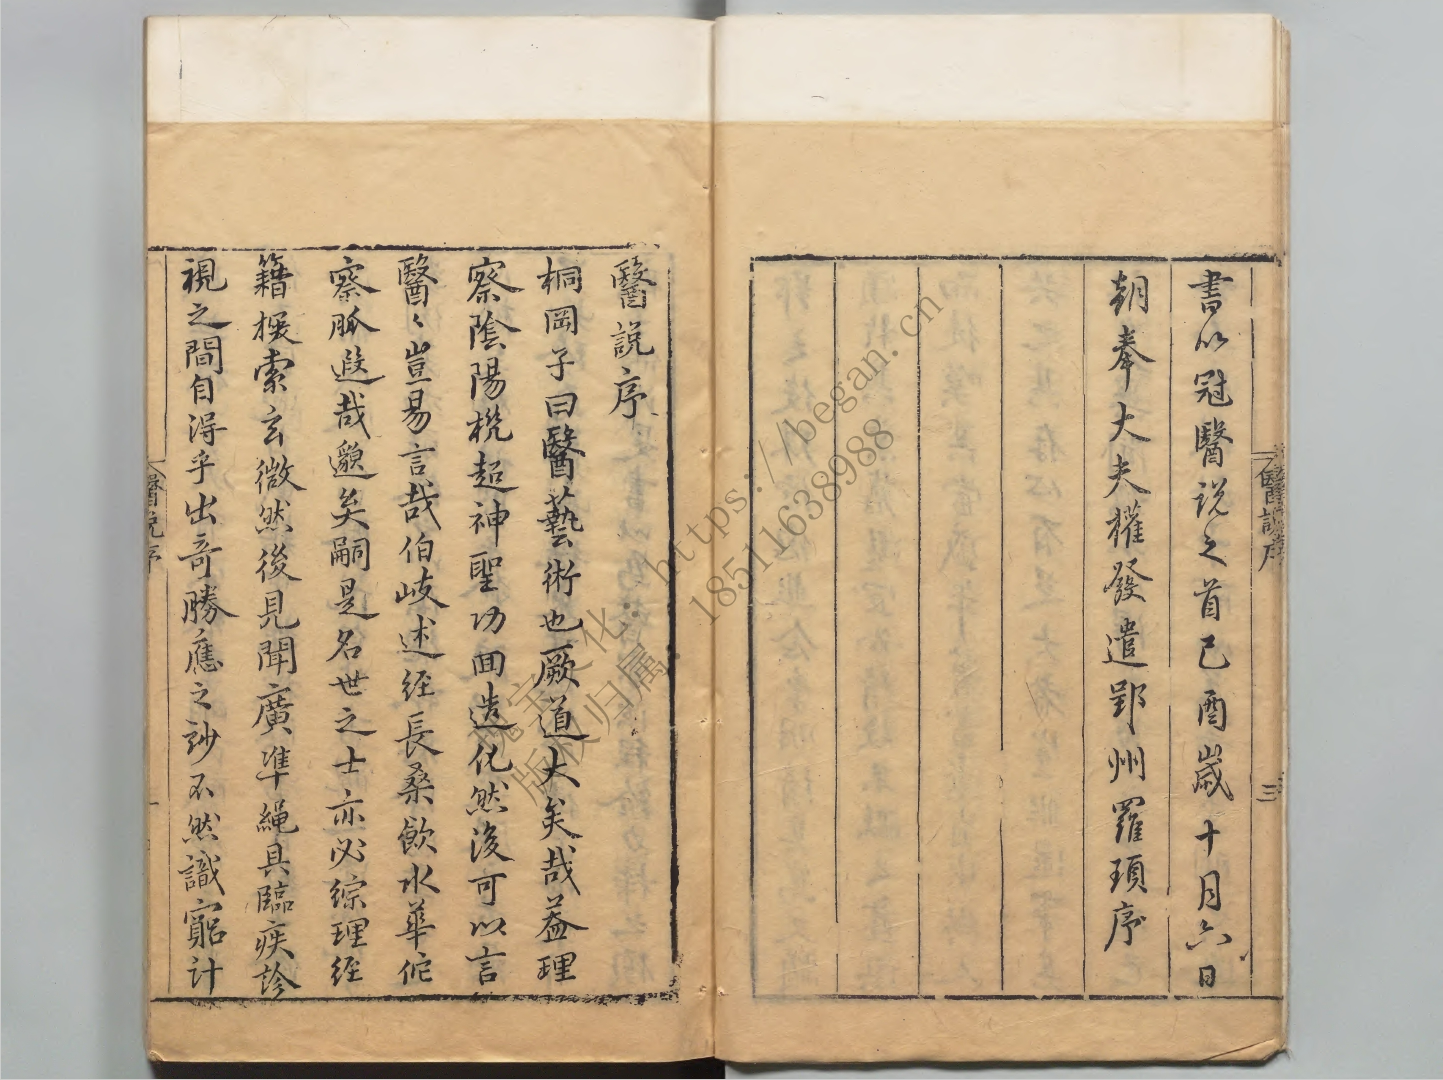 書以冠醫説之首己酉歲十月六日
朝奉大夫權發遣郢州羅頊序
醫説序
三
醫説序
桐岡子曰醫藝術也厥道大矣哉蓋理
察陰陽機超神聖功回造化然後可以言
醫〻豈易言哉伯岐述經長桑飲水華佗
察脈遐哉邈矣嗣是名世之士亦必綜理經
籍探索玄微然後見聞廣準繩具臨疾診
視之間自得乎出奇勝應之玅不然識窮計
醫説序
一
瑰宝文化 https://began.cn
版权归属 18511638988